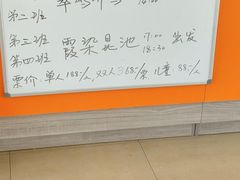 第二班
第三班 霞染昆池 17:00 出发
第四班 18:30
票价:单人188/人,双人368/票 儿童:88/人